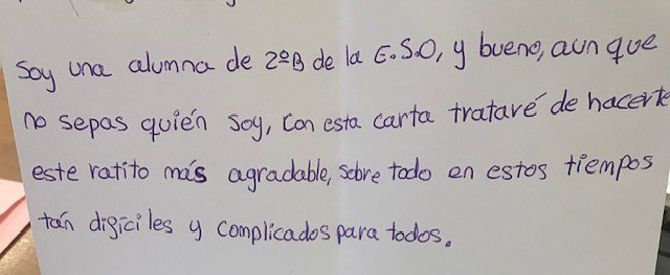 Soy una alumna de 2ºB de la E.S.O, y bueno, aun que
no sepas quién soy, con esta carta trataré de hacerte
este ratito más agradable, sobre todo en estos tiempos
tán difíciles y complicados para todos.